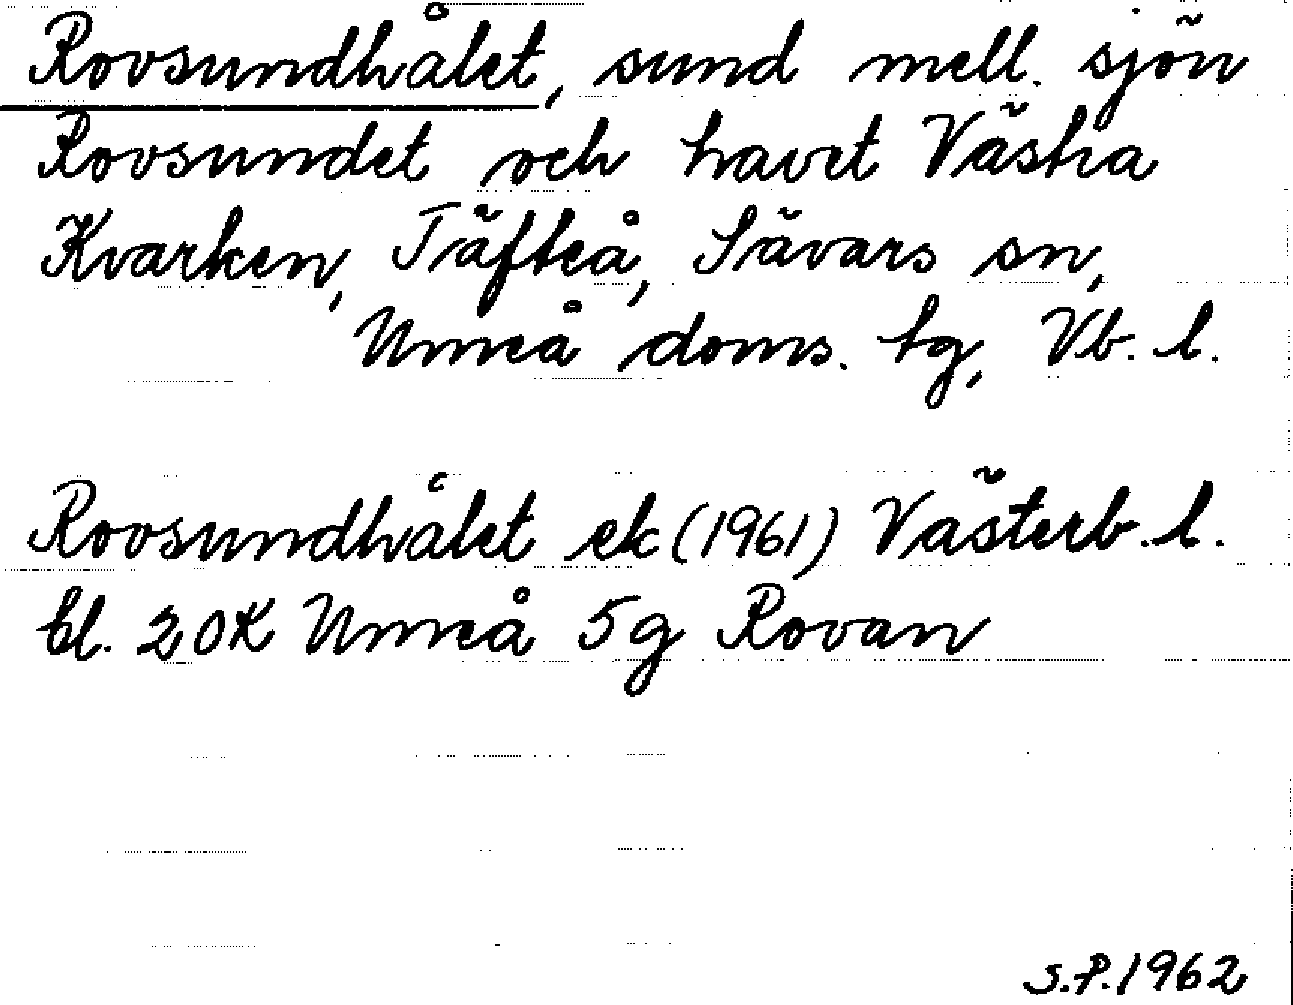 Rovsundhålet, sund mell. sjön
Rovsundet och havet Västra
Kvarken, Täfteå, Sävars sn,
Umeå doms. tg, Vb. l.
Rovsundhålet ek (1961) Västerb. l.
bl. 20K Umeå 5g Rovan
S.P. 1962